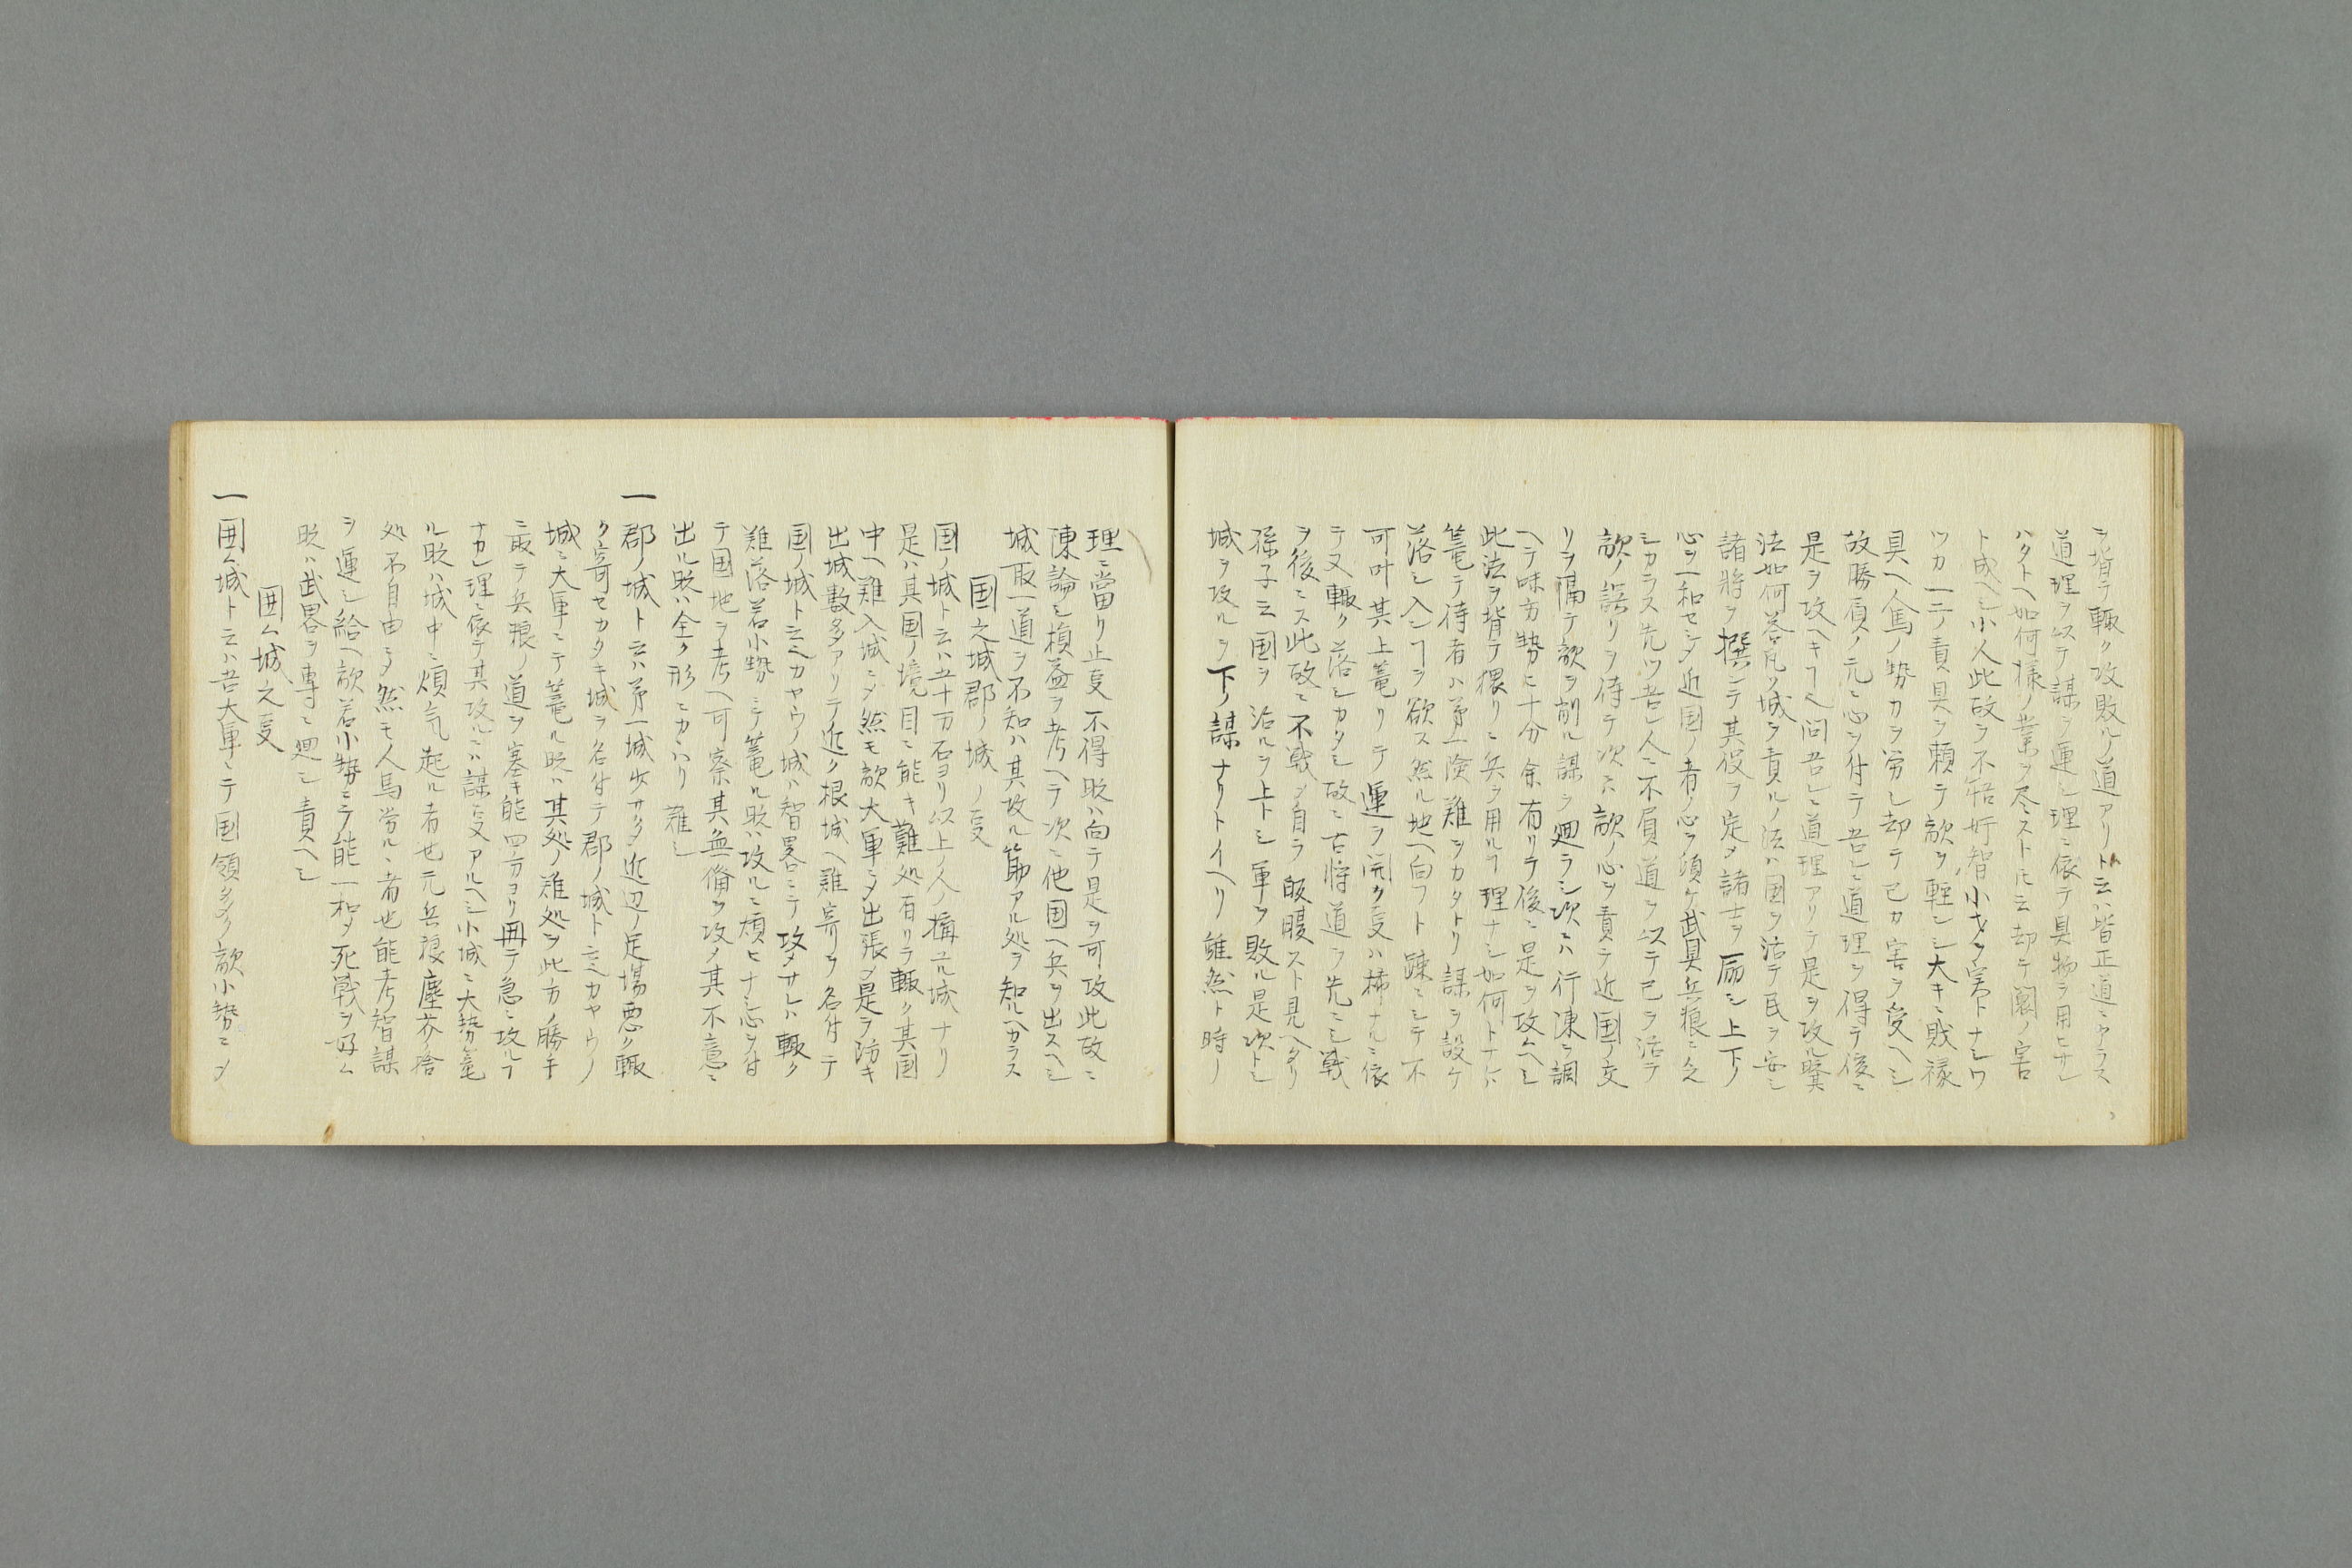 ヲ背テ輙ク攻敗ルノ道アリト云ハ皆正道ニアラス
道理ヲ以テ謀ヲ運シ理ニ依テ具物ヲ用ヒサレ
ハタトヘ如何様ノ業ヲ尽ストモ云却テ閣ノ害
ト成ヘシ小人此故ヲ不悟奸智小才ヲ実トナシワ
ツカ一二ノ責具ヲ頼テ敵ヲ軽シ大キニ財禄
具ヘ人馬ノ勢力ヲ労シ却テ己カ害ヲ受ヘシ
故勝負ノ元ニ心ヲ付テ吾ニ道理ヲ得テ後ニ
是ヲ攻ヘキ問吾ニ道理アリテ是ヲ攻ル其
法如何答凡ソ城ヲ責ルノ法ハ国ヲ治テ民ヲ安シ
諸将ヲ撰ンテ其役ヲ定メ諸士ヲ シ上下ノ
心ヲ一和セシメ近国ノ者ノ心ヲ傾ケ武具兵粮ニ乏
シカラス先ツ吾人ニ不負道ヲ以テ己ヲ治テ
敵ノ誤リヲ待テ次ニ敵ノ心ヲ責テ近国ノ交
リヲ隔テ敵ヲ削ル謀ヲ廻ラシ次ニハ行凍ニ調
ヘテ味方勢ヒ十分余有リテ後ニ是ヲ攻ムヘシ
此法ヲ背テ猥リニ兵ヲ用ル理ナシ如何トナレハ
篭テ待者ハ第一険難ヲカタトリ謀ヲ設ケ
落シ入ンヿヲ欲ス然ル地ヘ向フト疎ニシテ不
可叶其上篭リテ運ヲ開ク叓ハ稀ナルニ依
テ又輙ク落シカタシ故ニ古将道ヲ先ニシ戦
ヲ後ニス此故ニ不戦メ自ラ皈腹スト見ヘタリ
孫子云国ヲ治ルヲ上トシ軍ヲ敗ル是次トシ
城ヲ攻ルヲ下ノ謀ナリトイヘリ雖然ト時ノ
理ニ當リ止叓不得時ハ向テ是ヲ可攻此故ニ
陳論シ損益ヲ考ヘテ次ニ他国ヘ兵ヲ出スヘシ
城取一道ヲ不知ハ其攻ル節アル処ヲ知ルヘカラス
国之城郡ノ城ノ叓
国ノ城ト云ハ五十万石ヨリ以上ノ人ノ構ユル城ナリ
是ハ其国ノ境目ニ能キ難処有リテ輙ク其国
中ヘ難入城ニメ然モ敵大軍ニメ出張メ是ヲ防キ
出城数多アリテ近ク根城ヘ難寄リヲ名付テ
国ノ城ト云ヘカヤウノ城ハ智畧ニテ攻メサレハ輙ク
難落若小勢ニテ篭ル時ハ攻ルニ煩ヒナシ心ヲ付
テ国地ヲ考ヘ可察其無備ヲ攻メ其不意ニ
出ル時ハ全ク形ニカヽハリ難シ
一郡ノ城ト云ハ第一城少サク近辺ノ足場悪ク輙
ク寄セカタキ城ヲ名付テ郡ノ城ト云カヤウノ
城ニ大軍ニテ篭ル時ハ其処ノ難処ヲ此方ノ勝手
ニ取テ兵粮ノ道ヲ塞キ能四方ヨリ冊テ急ニ攻ルヿ
ナカレ理ニ依テ其攻ルニハ謀叓アルヘシ小城ニ大勢篭
ル時ハ城中ニ煩気起ル者也元兵粮塵芥ノ捨
処不自由ニメ然モ人馬労ルヽ者也能考智謀
ヲ運シ給ヘ敵若小勢ニテ能一和メ死戦ヲ好ム
時ハ武畧ヲ専ニ廻シ責ヘシ
囲ム城之叓
一囲ム城ト云ハ吾大軍ニテ国領多ク敵小勢ニメ